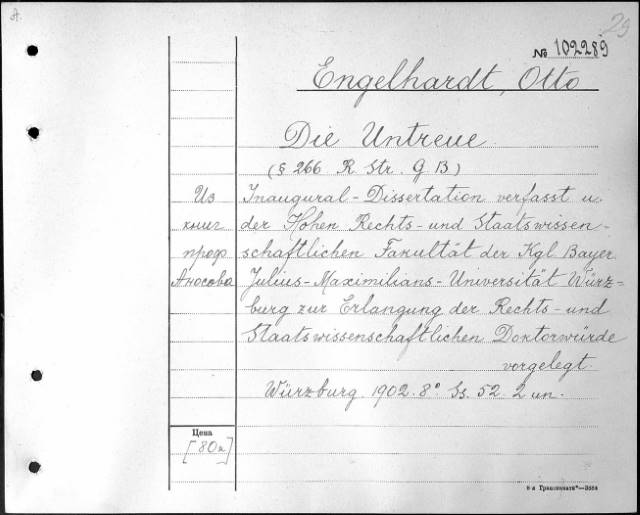 25
№ 102289
Engelhardt, Otto
Die Untreue.
(§ 266 R. Str. G B)
Из Inaugural-Dissertation verfasst u.
книг der Hohen Rechts- und Staatswissen-
проф schaftlichen Fakultät der Kgl Bayer
Аносова Julius-Maximilians-Universität Würz=
burg zur Erlangung der Rechts- und
Staatswissenschaftlichen Doktorwürde
vorgelegt.
Würzburg. 1902. 8° Ss. 52. 2 un.
Цена
[80к]